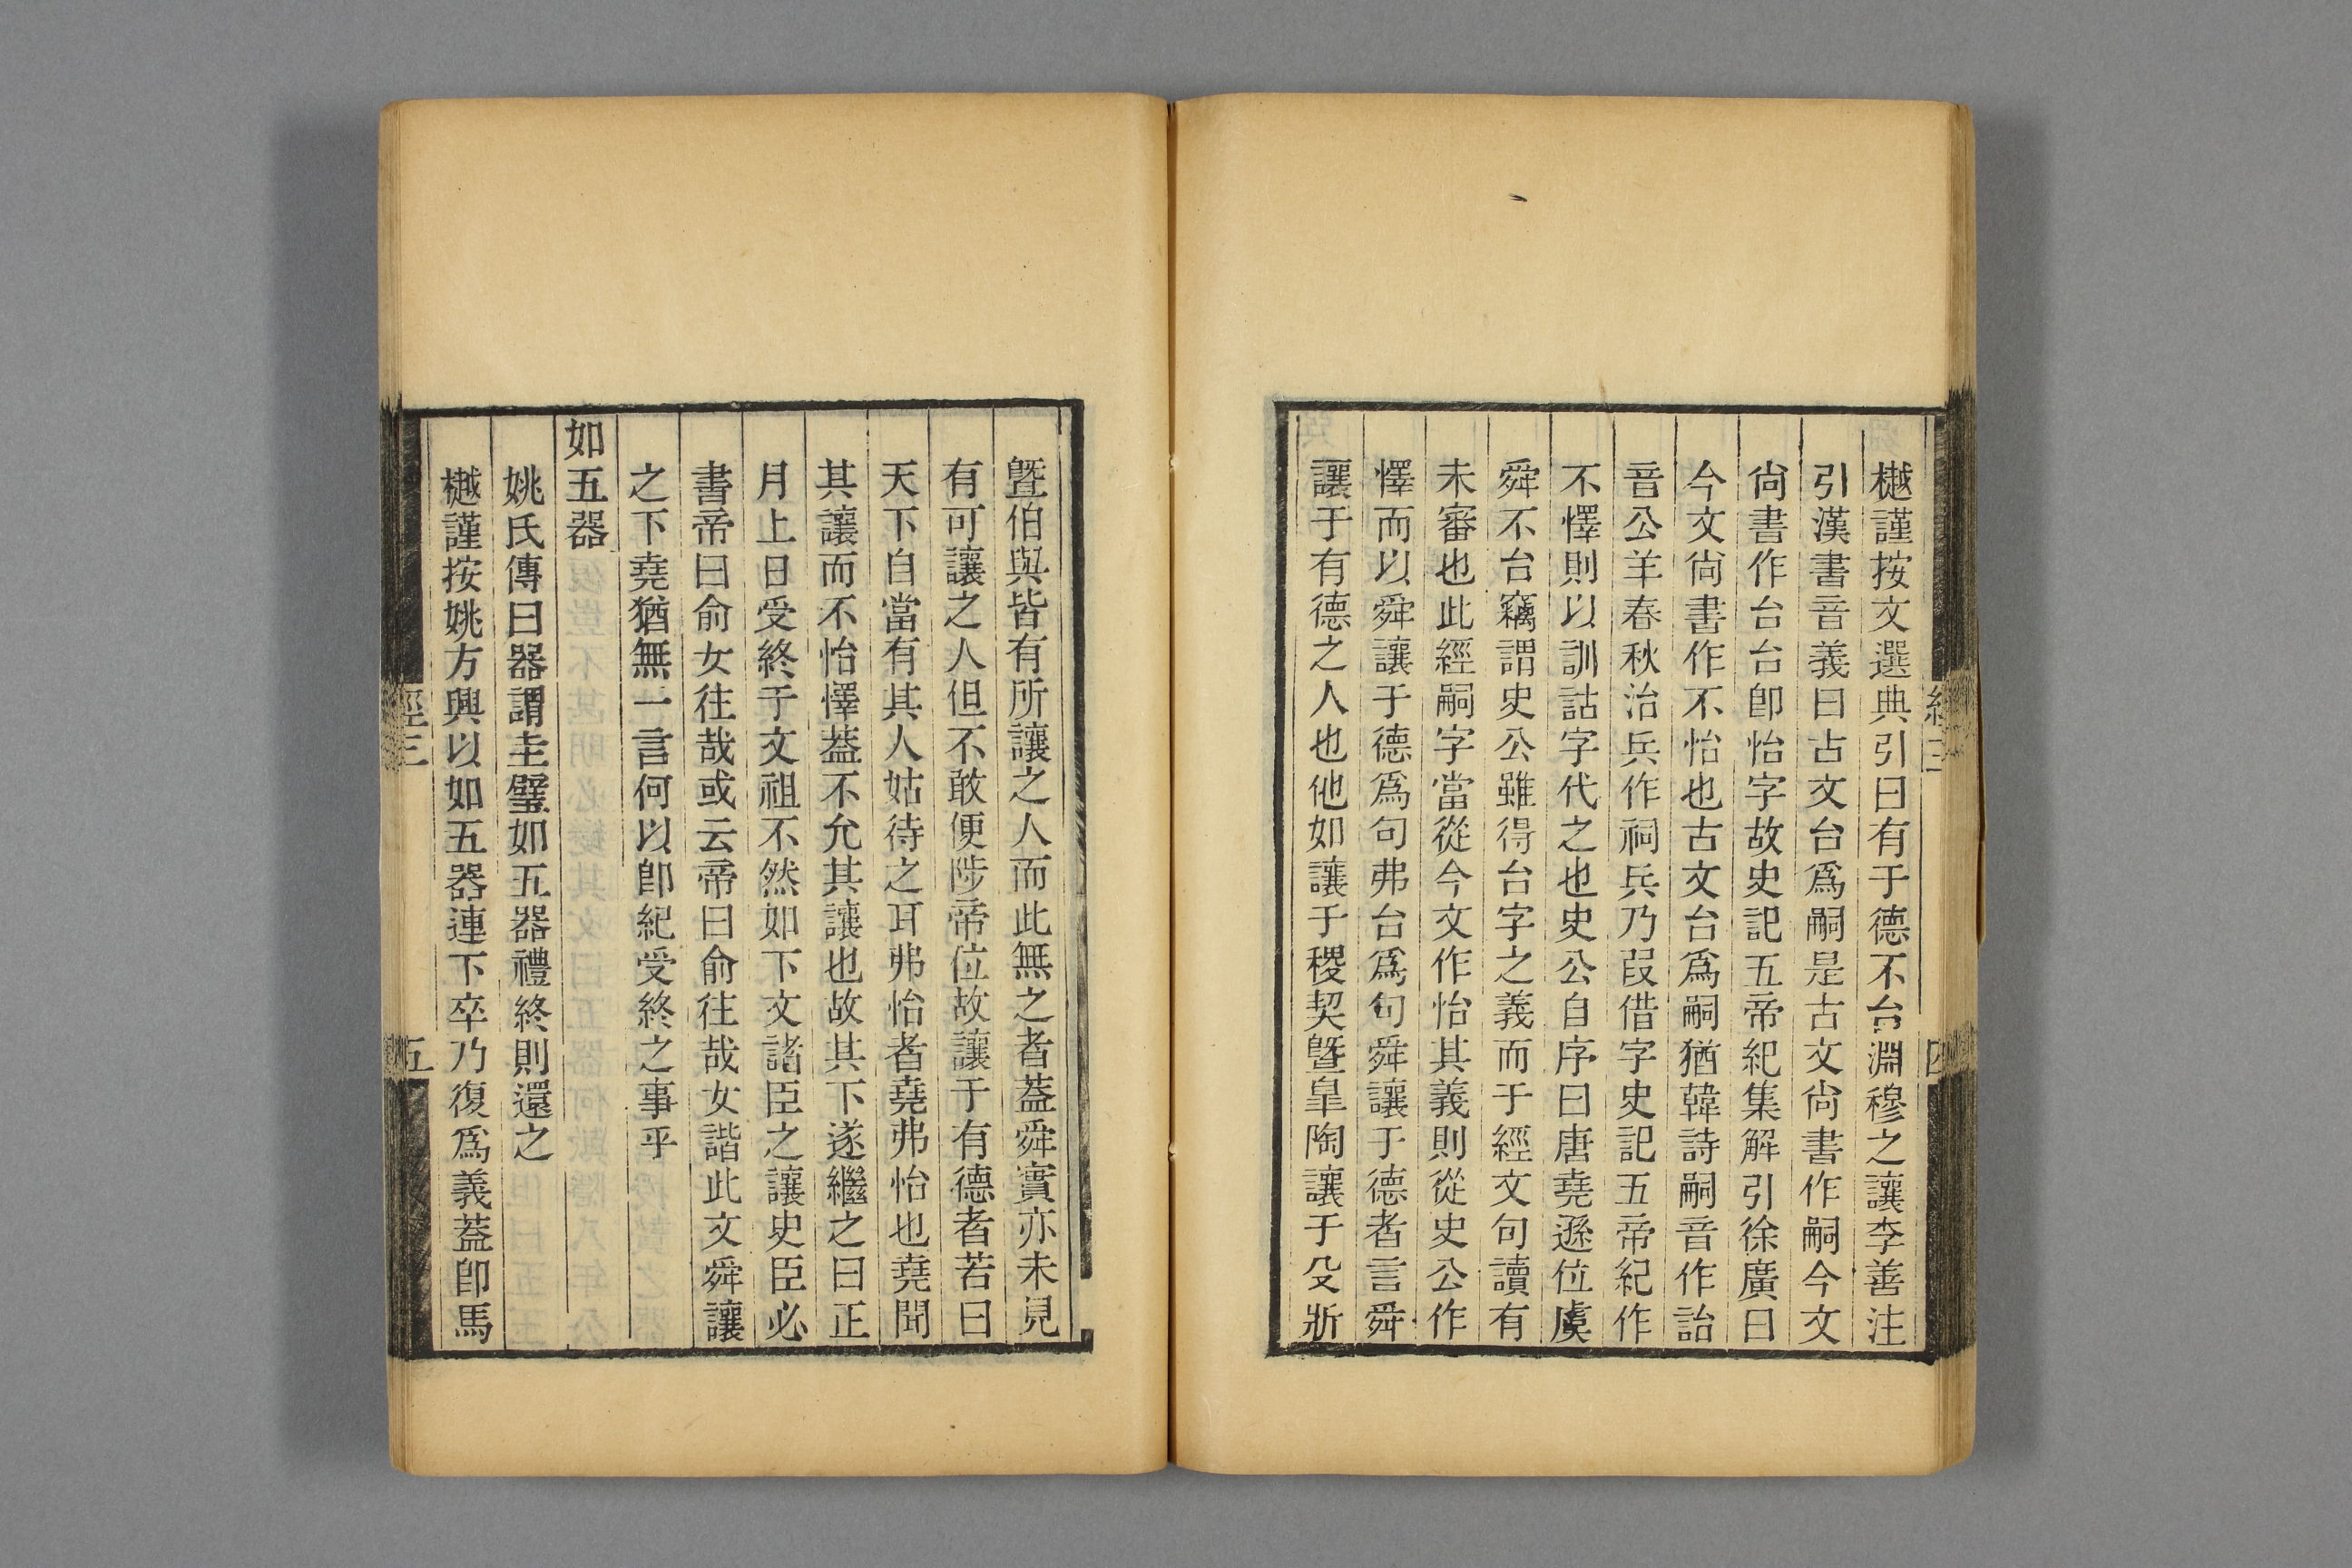 樾謹按文選典引曰有于德不台淵穆之讓李善注
引漢書音義曰古文台爲嗣是古文尙書作嗣今文
尙書作台台卽怡字故史記五帝紀集解引徐廣曰
今文尙書作不怡也古文台爲嗣猶韓詩嗣音作詒
音公羊春秋治兵作祠兵乃叚借字史記五帝紀作
不懌則以訓詁字代之也史公自序曰唐堯遜位虞
舜不台竊謂史公雖得台字之義而于經文句讀有
未審也此經嗣字當從今文作怡其義則從史公作
懌而以舜讓于德爲句弗台爲句舜讓于德者言舜
讓于有德之人也他如讓于稷契曁皐陶讓于殳斨
曁伯與皆有所讓之人而此無之者葢舜實亦未見
有可讓之人但不敢便陟帝位故讓于有德者若曰
天下自當有其人姑待之耳弗怡者堯弗怡也堯聞
其讓而不怡懌葢不允其讓也故其下遂繼之曰正
月上日受終于文祖不然如下文諸臣之讓史臣必
書帝曰俞女往哉或云帝曰俞往哉女諧此文舜讓
之下堯猶無一言何以卽紀受終之事乎
如五器
姚氏傳曰器謂圭璧如五器禮終則還之
樾謹按姚方興以如五器連下卒乃復爲義葢卽馬
經三
五